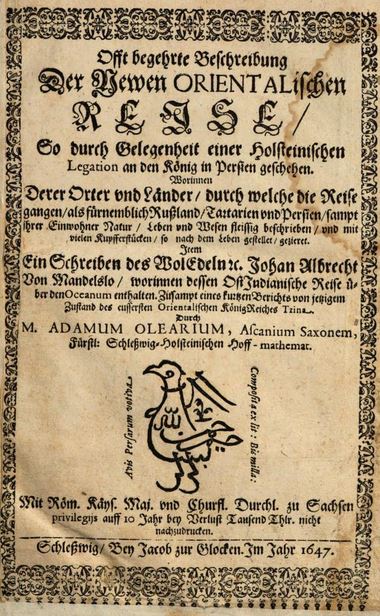 Offt begehrte Beschreibung
Der Newen ORIENTALischen
REJSE /
So durch Gelegenheit einer Holsteinischen
Legation an den König in Persien geschehen.
Worinnen
Derer Orter vnd Länder / durch welche die Reise
gangen / als fürnemblich Rußland / Tartarien vnd Persien / sampt
ihrer Einwohner Natur / Leben vnd Wesen fleissig beschrieben / vnd mit
vielen Kupfferstücken / so nach dem Leben gestellet / gezieret.
Item
Ein Schreiben des WolEdeln ꝛc. Johan Albrecht
Von Mandelslo / worinnen dessen OstIndianische Reise ü-
ber den Oceanum enthalten. Zusampt eines kurtzen Berichts von jetzigem
Zustand des eussersten Orientalischen KönigReiches Tzina.
Durch
M. ADAMUM OLEARIUM, Ascanium Saxonem,
Fürstl: Schleßwig-Holsteinischen Hoff-mathemat.
Avis Persarum votiva
Composita ex lit: Bismilla:
Mit Röm. Käys. Maj. vnd Churfl. Durchl. zu Sachsen
privilegijs auff 10 Jahr bey Verlust Tausend Thlr. nicht
nachzudrucken.
Schleßwig / Bey Jacob zur Glocken. Im Jahr 1647.